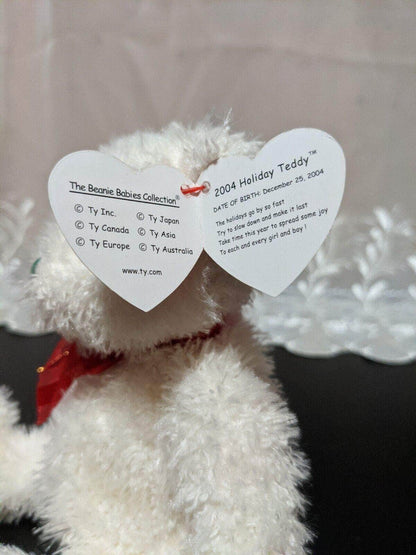 The Beanie Babies Collection®
© Ty Inc. © Ty Japan
© Ty Canada © Ty Asia
© Ty Europe © Ty Australia
www.ty.com
2004 Holiday Teddy™
DATE OF BIRTH: December 25, 2004
The holidays go by so fast
Try to slow down and make it last
Take time this year to spread some joy
To each and every girl and boy !